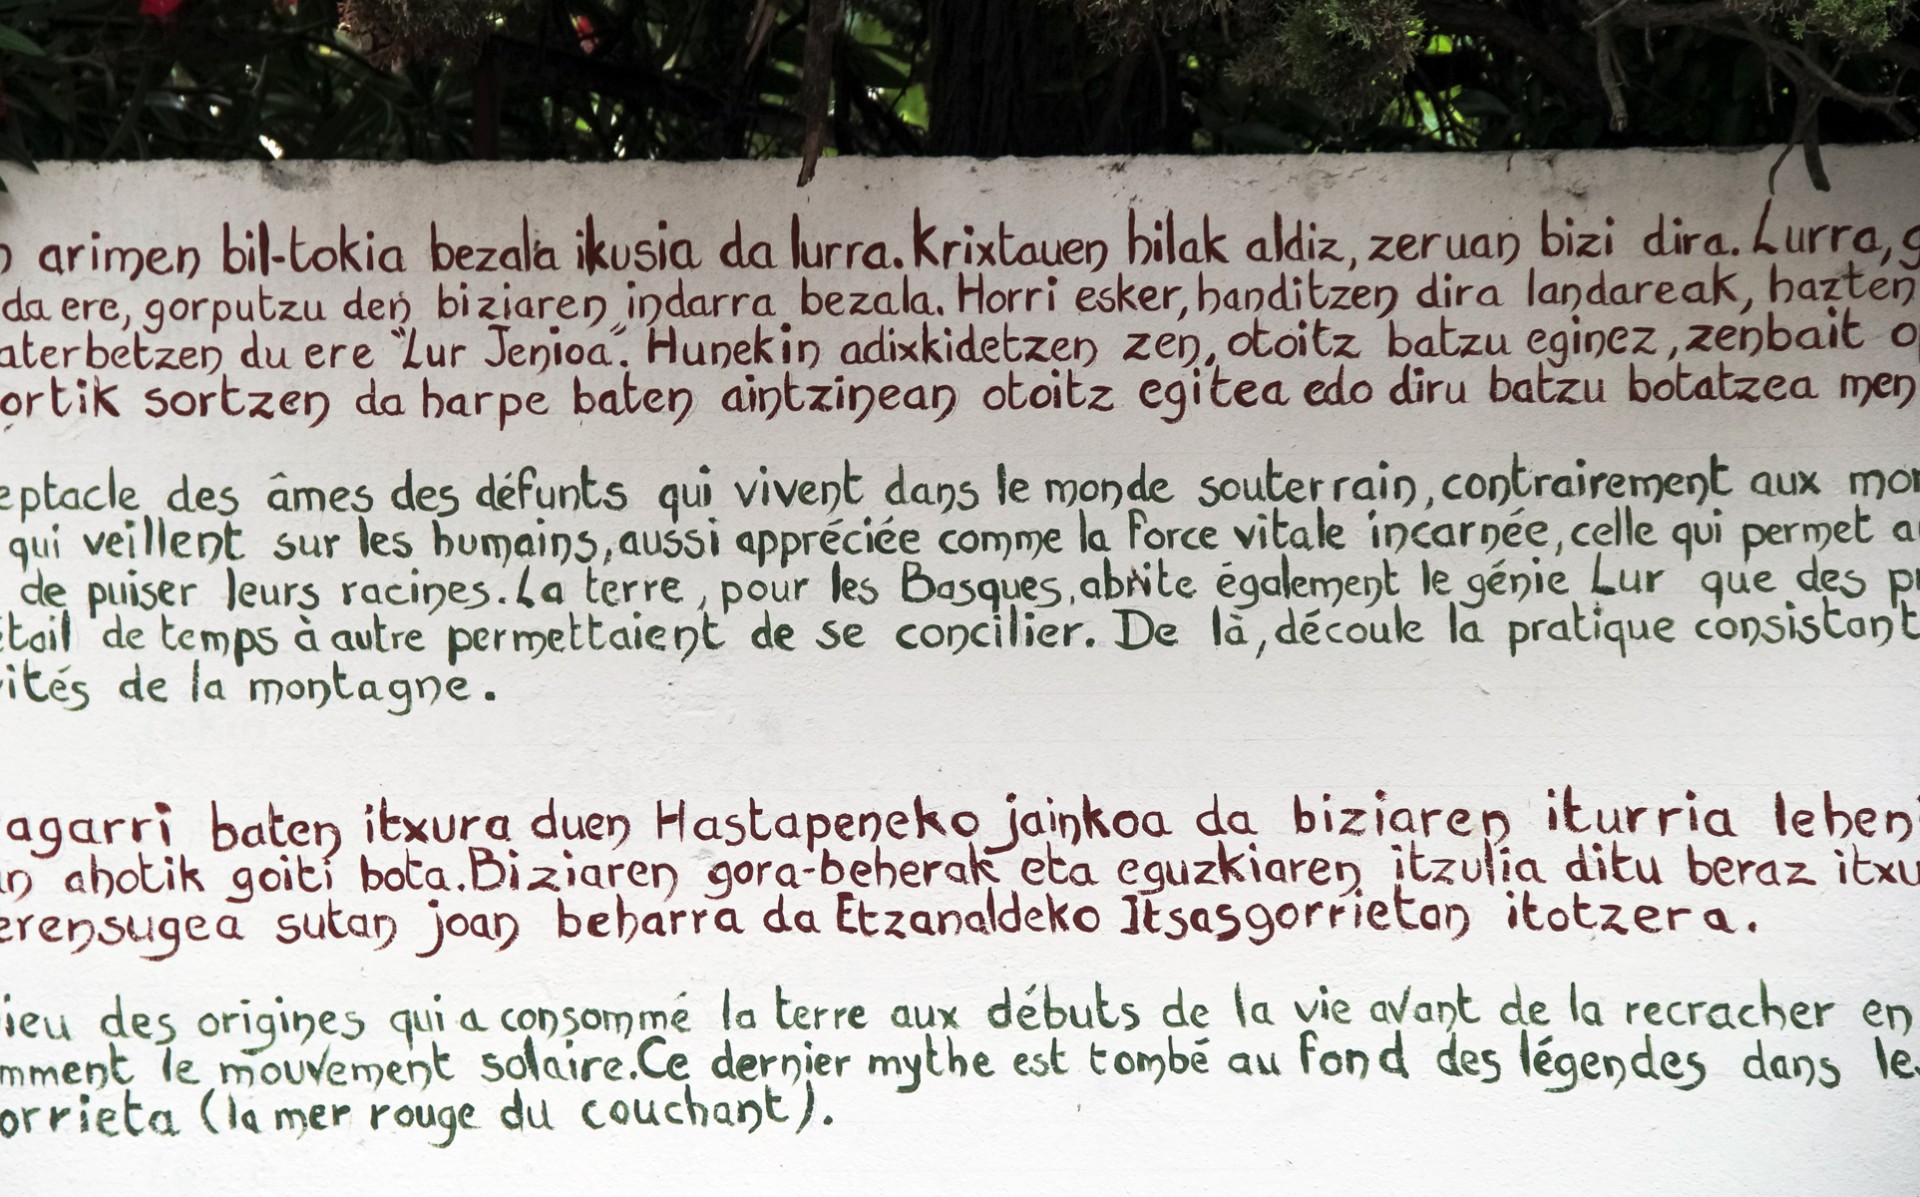 arimen bil-tokia bezala ikusia da lurra. Krixtauen hilak aldiz, zeruan bizi dira. Lurra,
da ere, gorputzu den biziaren indarra bezala. Horri esker, handitzen dira landareak, hazten
aterbetzen du ere "Lur Jenioa". Hunekin adixkidetzen zen, otoitz batzu eginez, zenbait
ortik sortzen da harpe baten aintzinean otoitz egitea edo diru batzu botatzea men
eptacle des âmes des défunts qui vivent dans le monde souterrain, contrairement aux mor
qui veillent sur les humains, aussi appréciée comme la force vitale incarnée, celle qui permet a
de puiser leurs racines. La terre, pour les Basques, abrite également le génie Lur que des pr
tail de temps à autre permettaient de se concilier. De là, découle la pratique consistant
ités de la montagne.
agarri baten itxura duen Hastapeneko jainkoa da biziaren iturria lehen
n ahotik goiti bota. Biziaren gora-beherak eta eguzkiaren itzulia ditu beraz itxu
erensugea sutan joan beharra da Etzanaldeko Itsasgorrietan itotzera.
ieu des origines qui a consommé la terre aux débuts de la vie avant de la recracher en
mment le mouvement solaire. Ce dernier mythe est tombé au fond des légendes dans le
orrieta (la mer rouge du couchant).